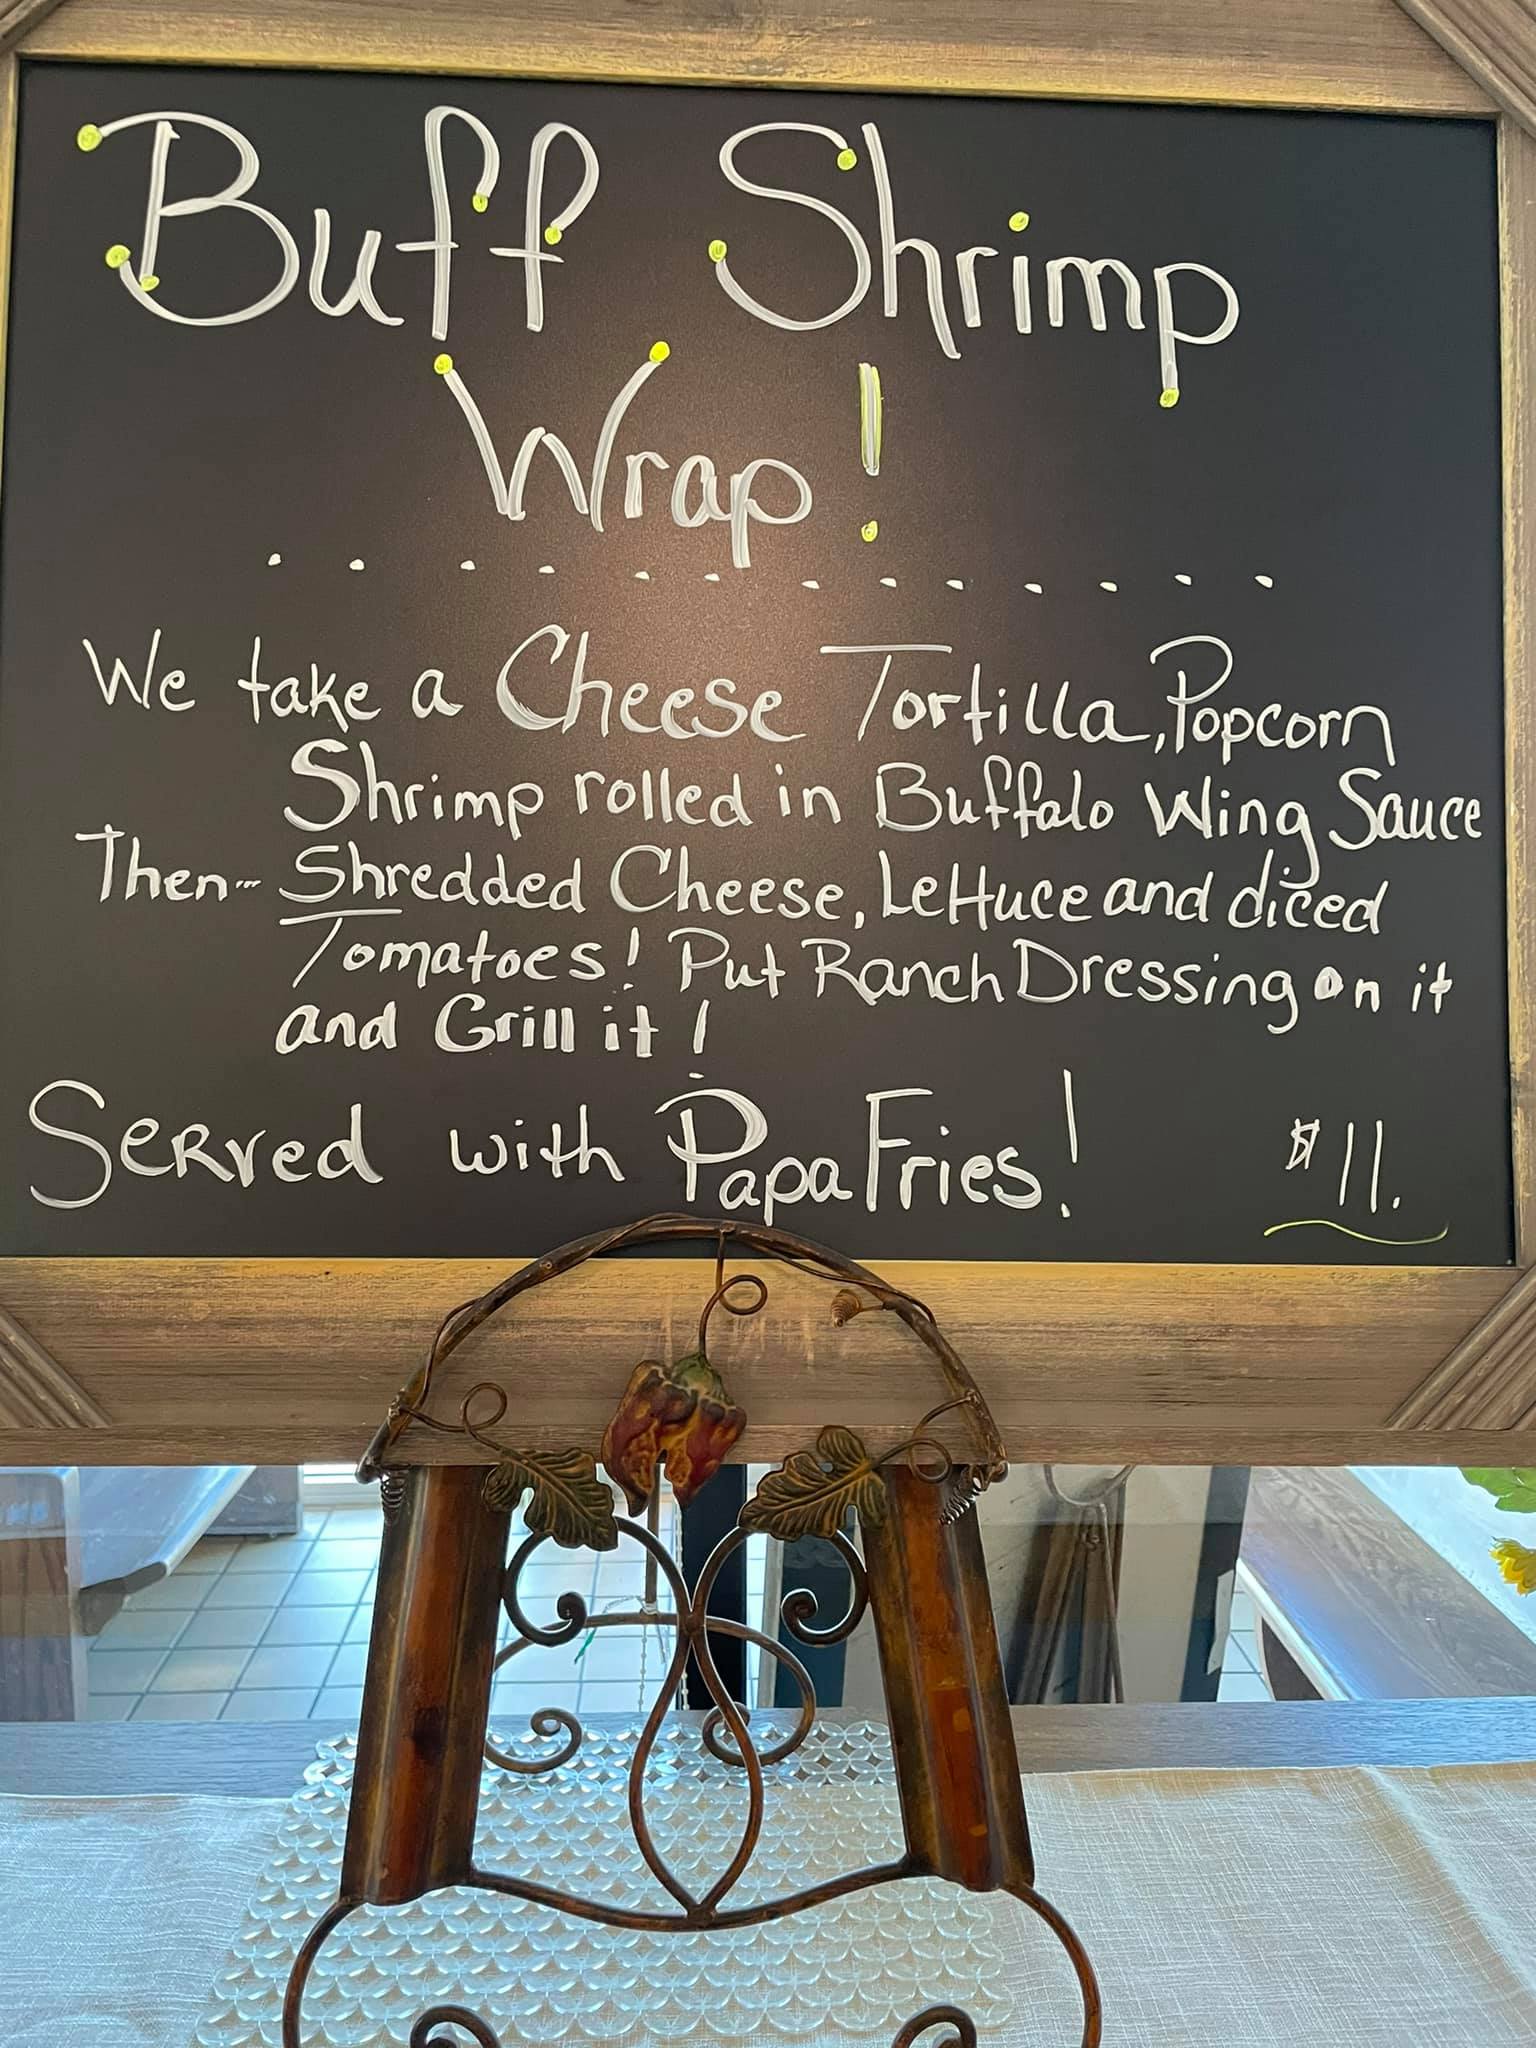 Buff Shrimp
Wrap!
. . . . . . . . . . . . .
We take a Cheese Tortilla, Popcorn
Shrimp rolled in Buffalo Wing Sauce
Then... Shredded Cheese, Lettuce and diced
Tomatoes! Put Ranch Dressing on it
and Grill it!
Served with Papa Fries! $11.